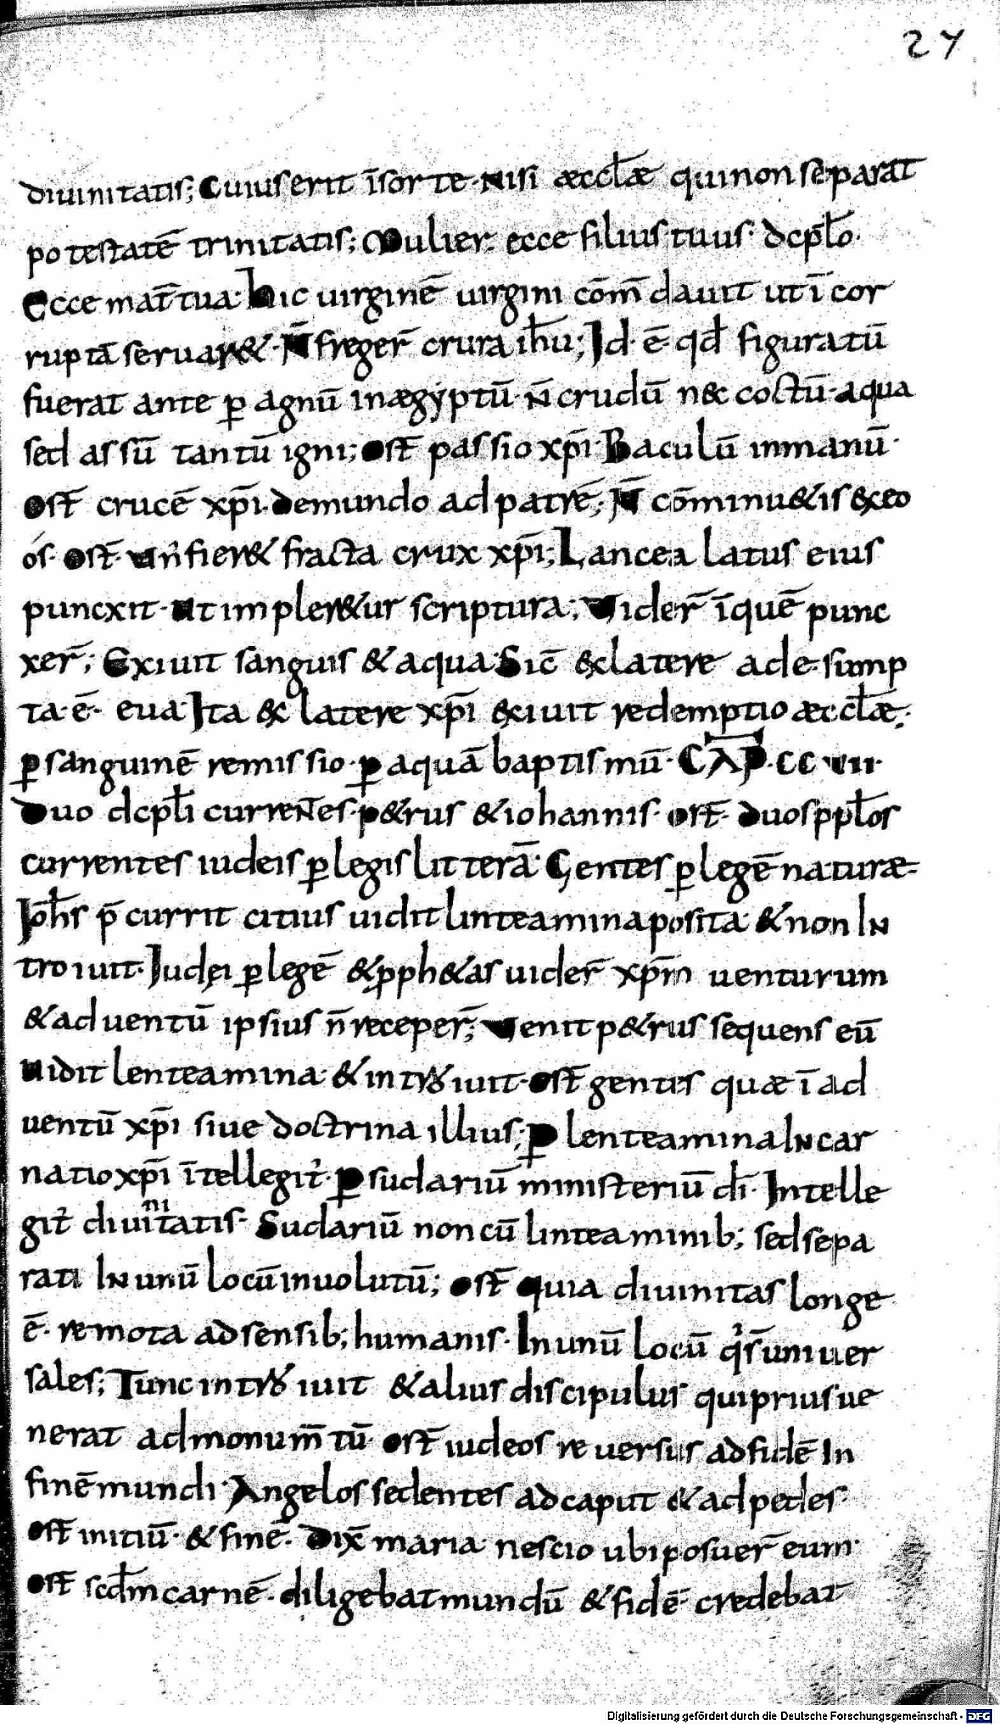 27
diuinitatis; Cuius erit īsorte· Nisi æccl̄æ qui non separat
potestatē trinitatis; Mulier· ecce filius tuus· dcpl̄o·
Ecce mat̄ tua· hic uirginē uirgini cōm̄dauit ut ī cor
ruptā seruar&· N̄ freger̄ crura ih̄u; Id· ē· qd̄ figuratū
fuerat ante ꝑ agnū in ægyptū· n̄ crudū nec coctū· aqua
sed assū tantū igni; ost̄ passio xp̄i· Baculū in manū·
ost̄ crucē xp̄i· de mundo ad patrē; N̄ cōminu&is ex eo
ós· ost̄· fier& fracta crux xp̄i; Lancea latus eius
puncxit· ut impler&ur scriptura; Uider̄ īquē punc
xer̄; Exiuit sanguis & aqua· Sic̄ ex latere ade sump
ta· ē· eua· Ita ex latere xp̄i exiuit redemptio æccl̄æ;
ꝑ sanguinē remissio· ꝑ aquā baptismū· CAP̄· CCVII·
Duo dcpl̄i curren̄es· p&rus & iohannis· ost̄· duos ppl̄os
currentes iudeis ꝑ legis litterā· Gentes ꝑ legē naturæ·
Joh̄s p̄currit citius uidit linteamina posita & non In
troiuit· Judęi ꝑ legē & pph&as uider̄ xp̄m uenturum
& aduentū ipsius n̄ receper̄; Uenit p&rus sequens eū
uidit lenteamina & intro iuit· ost̄ gentes quæ ī ad
uentū xp̄i siue doctrina illius; ꝑ lenteamina Incar
natio xp̄i ītellegit᷑· ꝑ sudariū ministeriū dī· Intelle
git᷑ diuinitatis· Sudariū non cū linteaminib; sed sepa
rati In unū locū inuolutū; ost̄ quia diuinitas longe
ē· remota ad sensib; humanis· In unū locū uniuer
sales; Tunc intro iuit & alius discipulus qui prius ue
nerat ad monum̄tū· ost̄ iudeos reuersus ad fidē In
finē mundi· Angelos sedentes ad caput & ad pedes·
ost̄ initiū· & finē· Dix̄ maria nescio ubi posuer̄ eum·
ost̄ scd̄m carnē· diligebat mundū & fidē· credebat
Digitalisierung gefördert durch die Deutsche Forschungsgemeinschaft - DFG